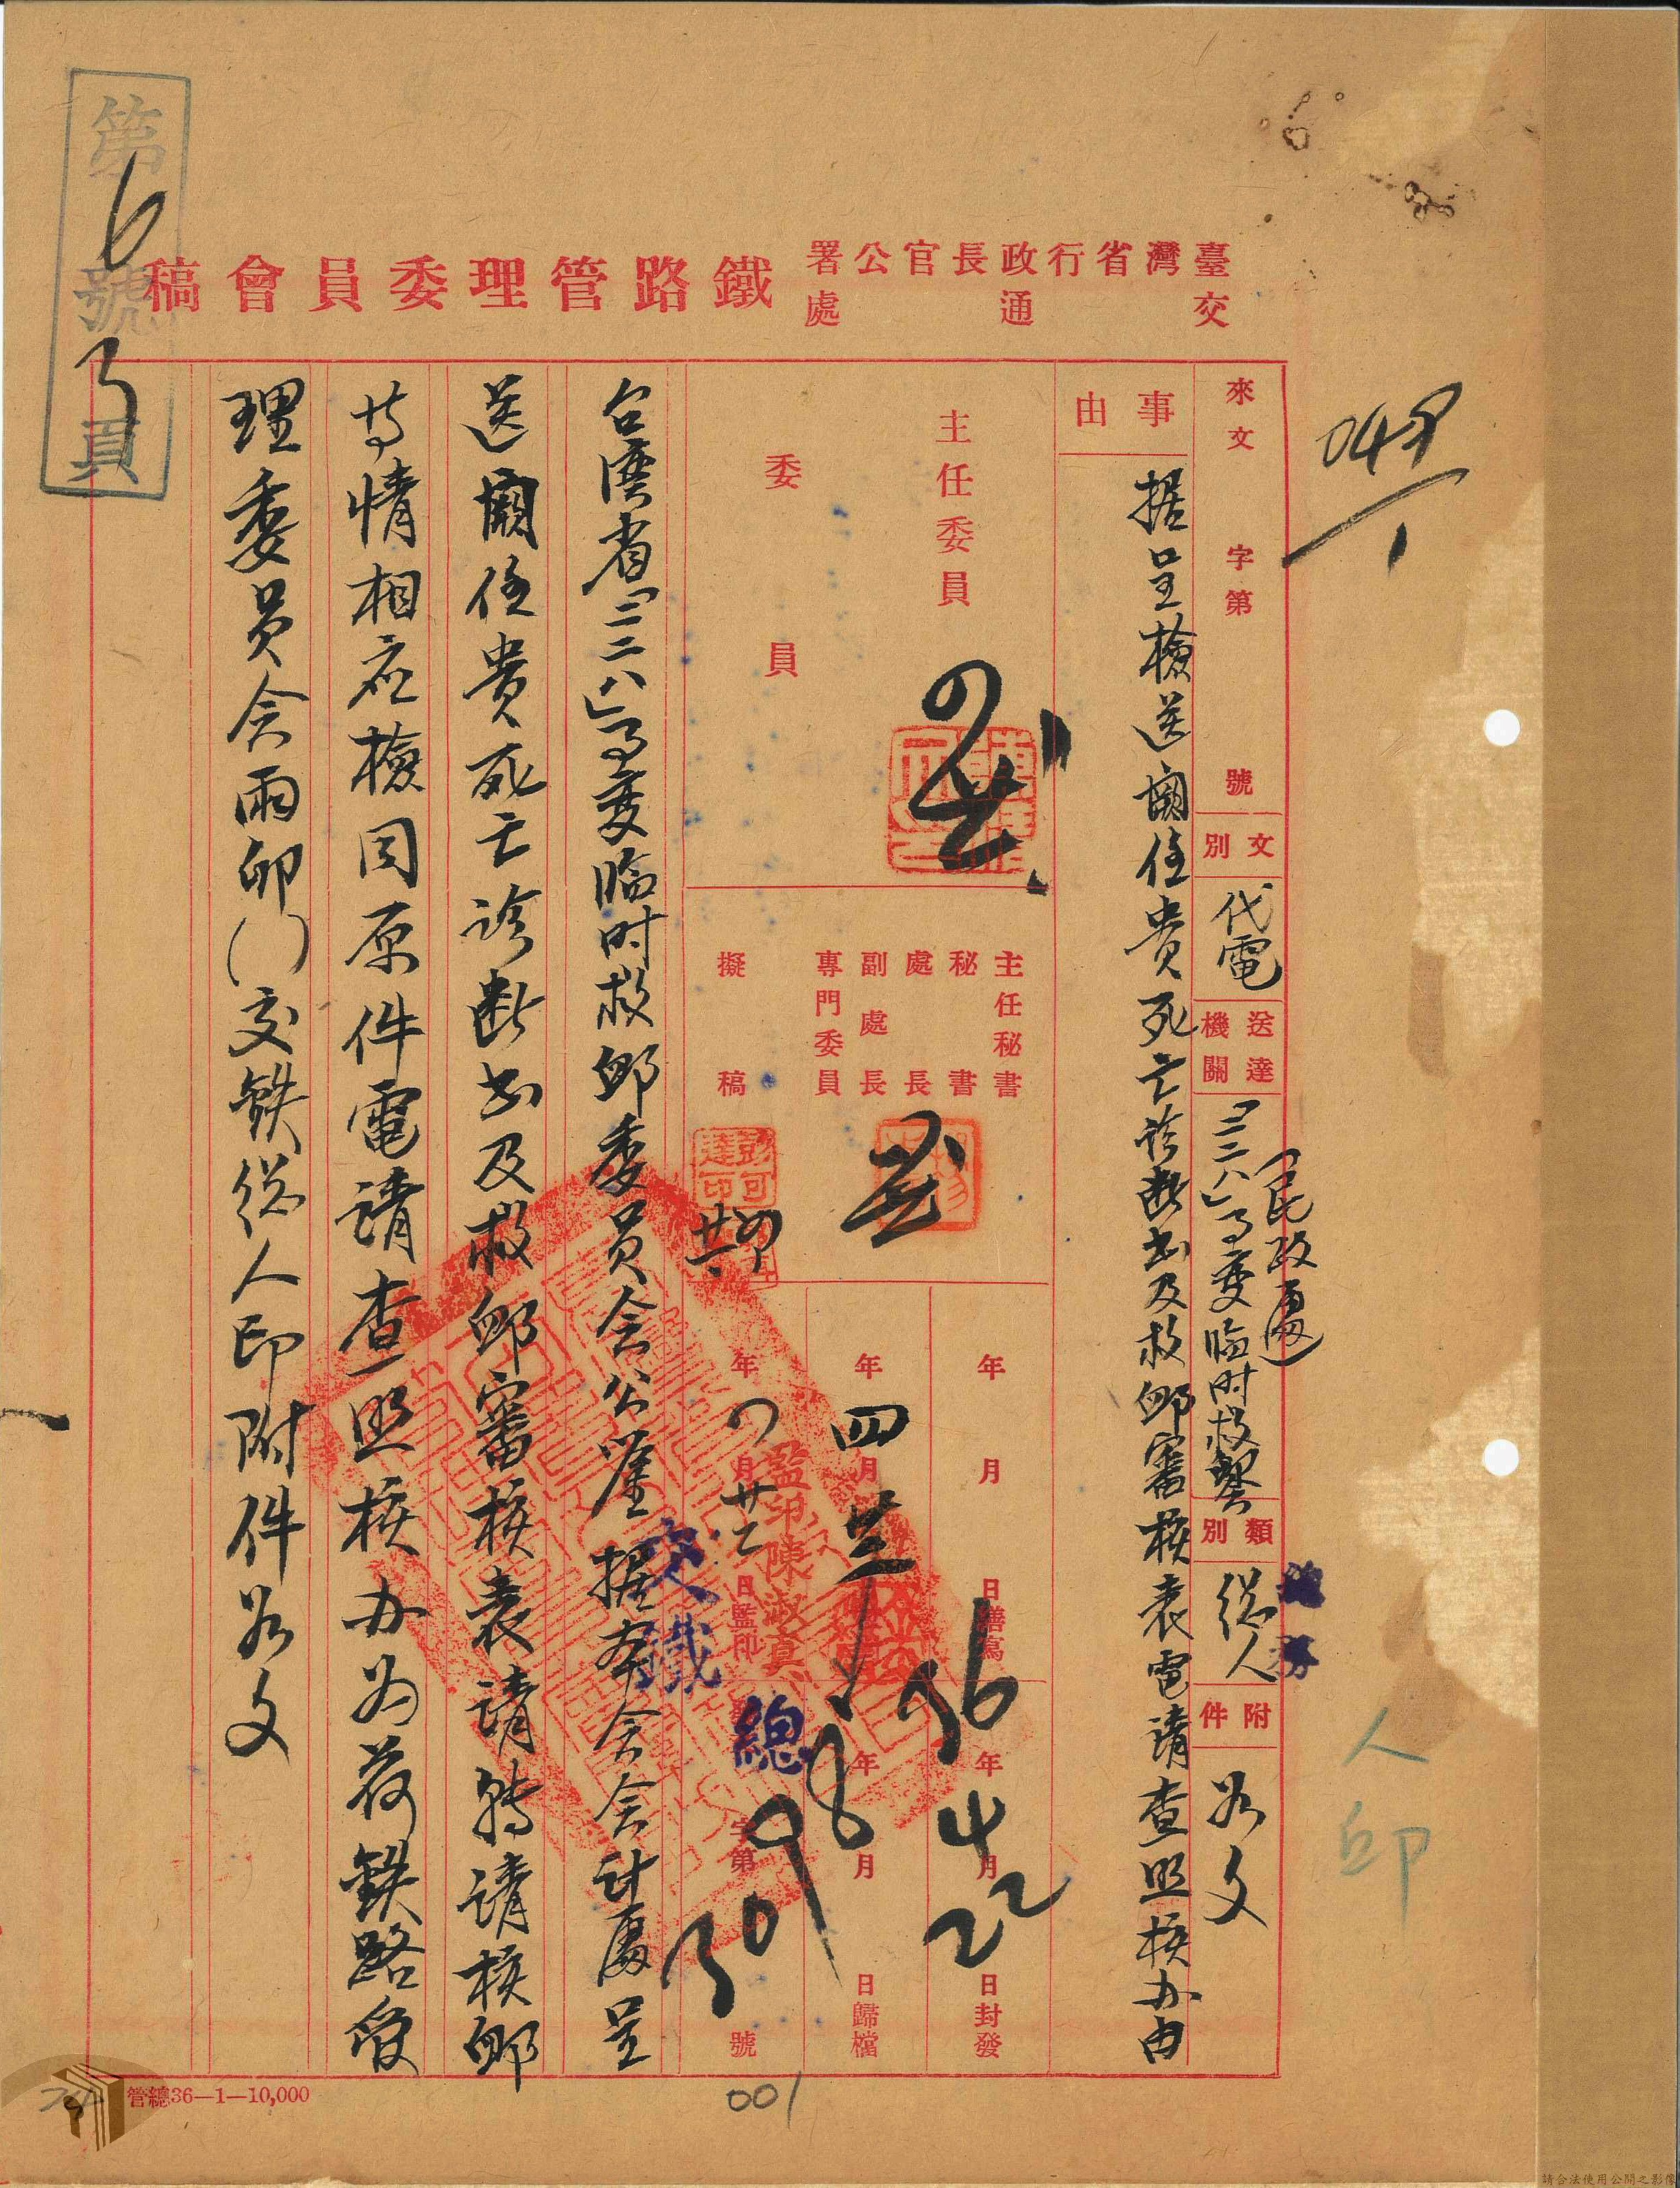 第6號
頁
臺灣省行政長官公署
交通處
鐵路管理委員會稿
來文 字第 號
文別
代電
送達機關
(民政處)
「二二八」事變臨時救
類別
總人
附件
如文
事由
据呈檢送闕住貴死亡診断书及救卹審核表電請查照核办由
主任委員
委員
主任秘書
秘書
處長
副處長
專門委員
擬稿
彭可達印
年 月 日繕寫
年四月 日
年 月廿二日監印
監印陳淑真
36年4月22日封發
年 月 日歸檔
字第 號
交鐵
總
台湾省「二二八」事变臨时救卹委員会公鉴 据本会会計處呈
送闕住貴死亡診断书及救卹審核表請轉請核卹
等情相应檢同原件電請查照核办为荷鉄路管
理委員会雨卯( )交鉄總人印附件如文
人印
管總36—1—10,000
001
請合法使用公開之影像